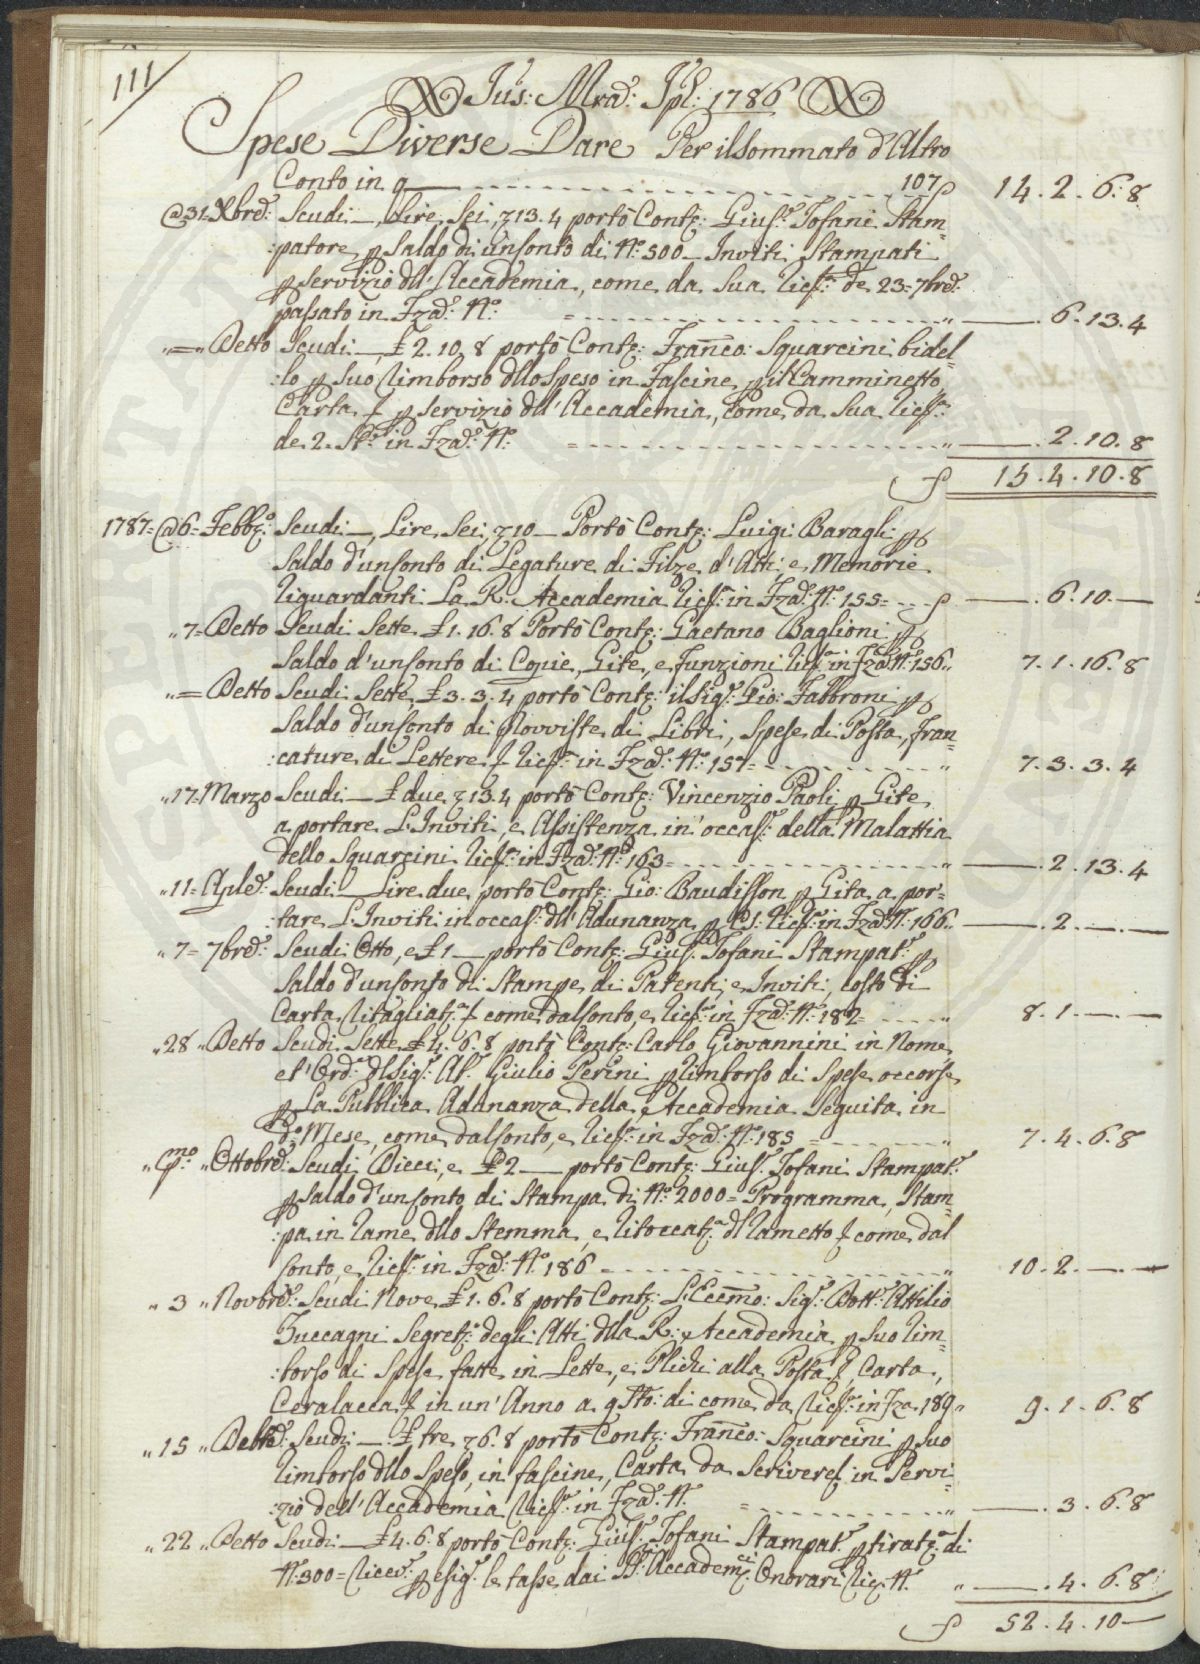 111
Jus: Mrd: Jpl: 1786
Spese Diverse Dare Per il Sommato d'Altro
Conto in q 107 14.2.6.8
@31 Xbre: Scudi — Lire Sei, 13.4 portò Cont: Gius: Tofani Stam=
:patore p Saldo di un Conto di N° 500 — Inviti Stampati
p servizio dll' Accademia, come da Sua Ric: de 23=7bre:
passato in Fza: N° — 6.13.4
"=" Detto Scudi — £ 2.10.8 portò Cont: Franco: Squarcini bidel=
:lo p Suo Rimborso dllo Speso in Fascine p il Camminetto,
Carta & p servizio dll' Accademia, come da Sua Ric:
de 2. St: in Fza: N°: " — 2.10.8
15.4.10.8
1787=@6= Febb: Scudi — Lire Sei, 10 — Portò Cont: Luigi Baragli p
Saldo d'un Conto di Legature di Filze d'Atti, e Memorie
Riguardanti La R. Accademia Ric: in Fza: N° 155= — 6.10.—
"7= Detto Scudi Sette £ 1.16.8 Portò Cont: Gaetano Baglioni p
Saldo d'un Conto di Copie, Gite, e funzioni Ric: in Fza N° 156" 7.1.16.8
"= Detto Scudi Sette, £ 3.3.4 portò Cont: il Sig: Gio: Fabbroni p
Saldo d'un Conto di Provviste di Libri, Spese di Posta, fran=
:cature di Lettere & Ric: in Fza: N° 157= " 7.3.3.4
"17 Marzo Scudi — £ due, 13.4 portò Cont: Vincenzio Paoli p Gite
a portare L'Inviti, e Assistenza in occas: della Malattia
dello Squarcini Ric: in Fza: N° 163= " — 2.13.4
"11= Aple: Scudi — Lire due, portò Cont: Gio: Baudisson p Gita a por=
:tare L'Inviti in occas: dll' Adunanza p Ric: in Fza N° 166" — 2.—.—
"7= 7bre: Scudi Otto, e £ 1 — portò Cont: Gius: Tofani Stampat: p
Saldo d'un Conto di Stampe di Patenti, e Inviti, Costo di
Carta, Ritagliat: & come dal Conto, e Ric: in Fza: N° 182= " 8.1.—.—
"28" Detto Scudi Sette £ 4.6.8 portò Cont: Carlo Giovannini in Nome,
et' Ord: dl Sig: Ab: Giulio Perini p Rimborso di Spese occorse
p La Pubblica Adunanza della Accademia Seguita in
do Mese, come dal Conto, e Ric: in Fza: N° 185 = " 7.4.6.8
"pmo" Ottobre: Scudi Dieci, e £ 2 — portò Cont: Gius: Tofani Stampat:
p Saldo d'un Conto di Stampa di N° 2000= Programma, Stam=
:pa in Rame dllo Stemma, e Ritoccat: dl Rametto & come dal
Conto, e Ric: in Fza: N° 186 = " 10.2.—.—
"3" Novbre: Scudi Nove £ 1.6.8 portò Cont: L'Eccmo: Sig: Dott: Attilio
Zuccagni Segret: degli Atti dlla R: Accademia p Suo Rim=
:borso di Spese fatte in Lette, e Plichi alla Posta, Carta,
Ceralacca & in un'Anno a qsto: di come da Ric: in Fza 189" 9.1.6.8
"15" Detto: Scudi — £ tre, 6.8 portò Cont: Franco: Squarcini p Suo
Rimborso dllo Speso, in fascine, Carta da Scrivere & in Servi=
:zio dell' Accademia Ric: in Fza: N° = " — 3.6.8
"22" Detto Scudi — £ 4.6.8 portò Cont: Gius: Tofani Stampat: p tirat: di
N° 300= Ricev: p esig: le tasse dai Accadem: Onorari Ric: N° " — 4.6.8
52.4.10—